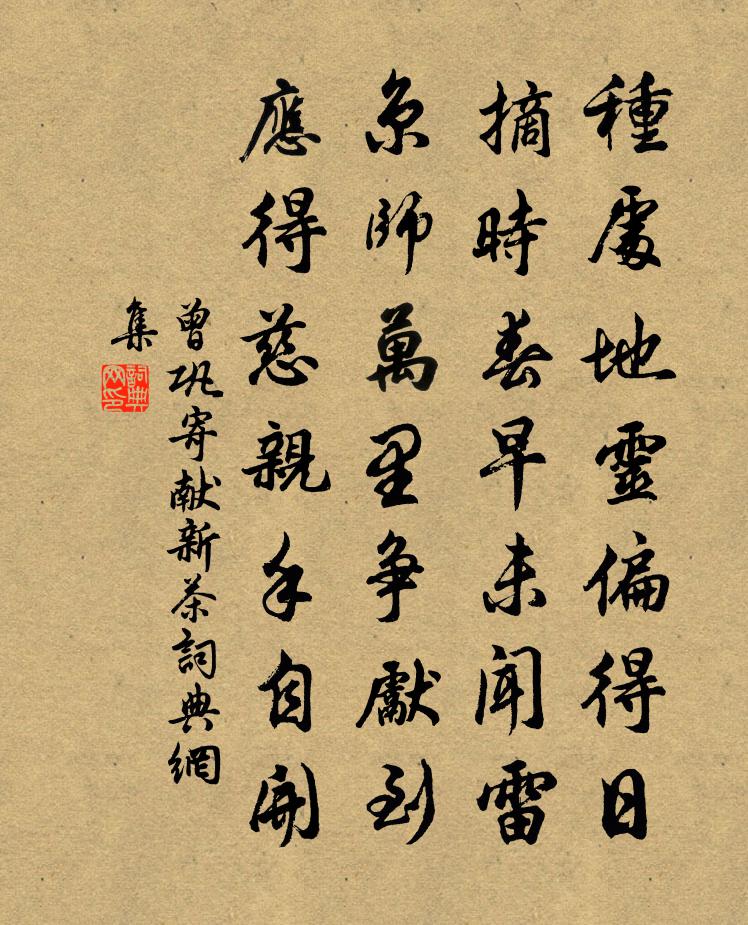 種處地靈偏得日
摘時春早未聞雷
京師萬里争獻到
應得慈親手自開
曾巩寄献新茶詞典網
集
詞典
网印